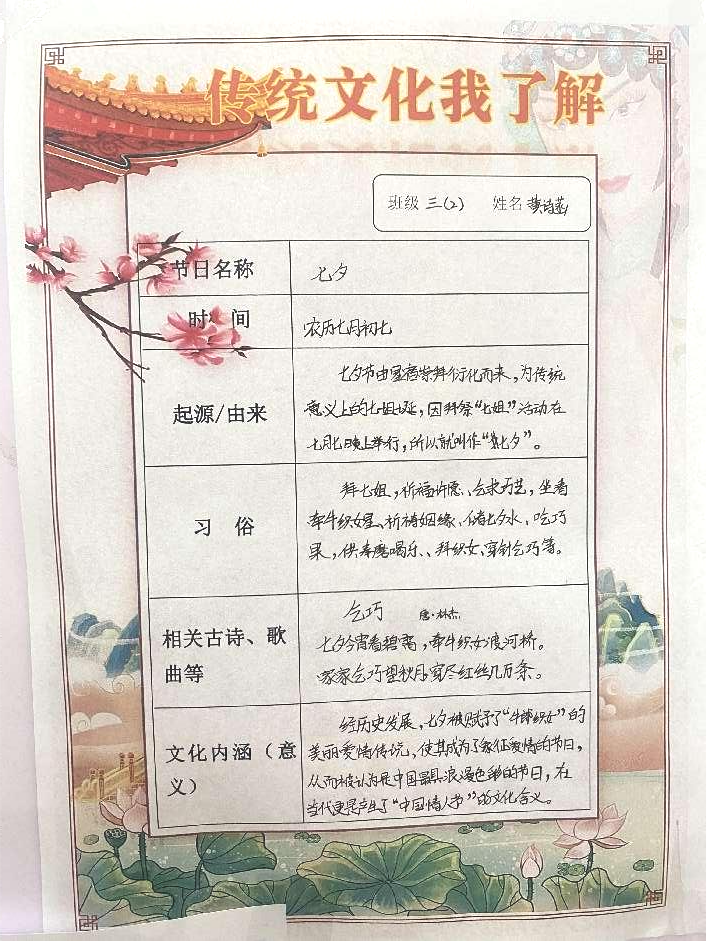 传统文化我了解
班级 三(2) 姓名 黄诗
节日名称
七夕
时 间
农历七月初七
起源/由来
七夕节由星宿崇拜衍化而来,为传统
意义上的七姐诞,因拜祭“七姐”活动在
七月七晚上举行,所以就叫作“七夕”。
习 俗
拜七姐,祈福许愿、乞求巧艺,坐看
牵牛织女星、祈祷姻缘、储七夕水、吃巧
果,供奉磨喝乐、、拜织女、穿针乞巧等。
相关古诗、歌
曲等
乞巧 唐·林杰
七夕今宵看碧霄,牵牛织女渡河桥。
家家乞巧望秋月,穿尽红丝几万条。
文化内涵(意
义)
经历史发展,七夕被赋予了“牛郎织女”的
美丽爱情传说,使其成为了象征爱情的节日,
从而被认为是中国最具浪漫色彩的节日,在
当代更是产生了“中国情人节”的文化含义。